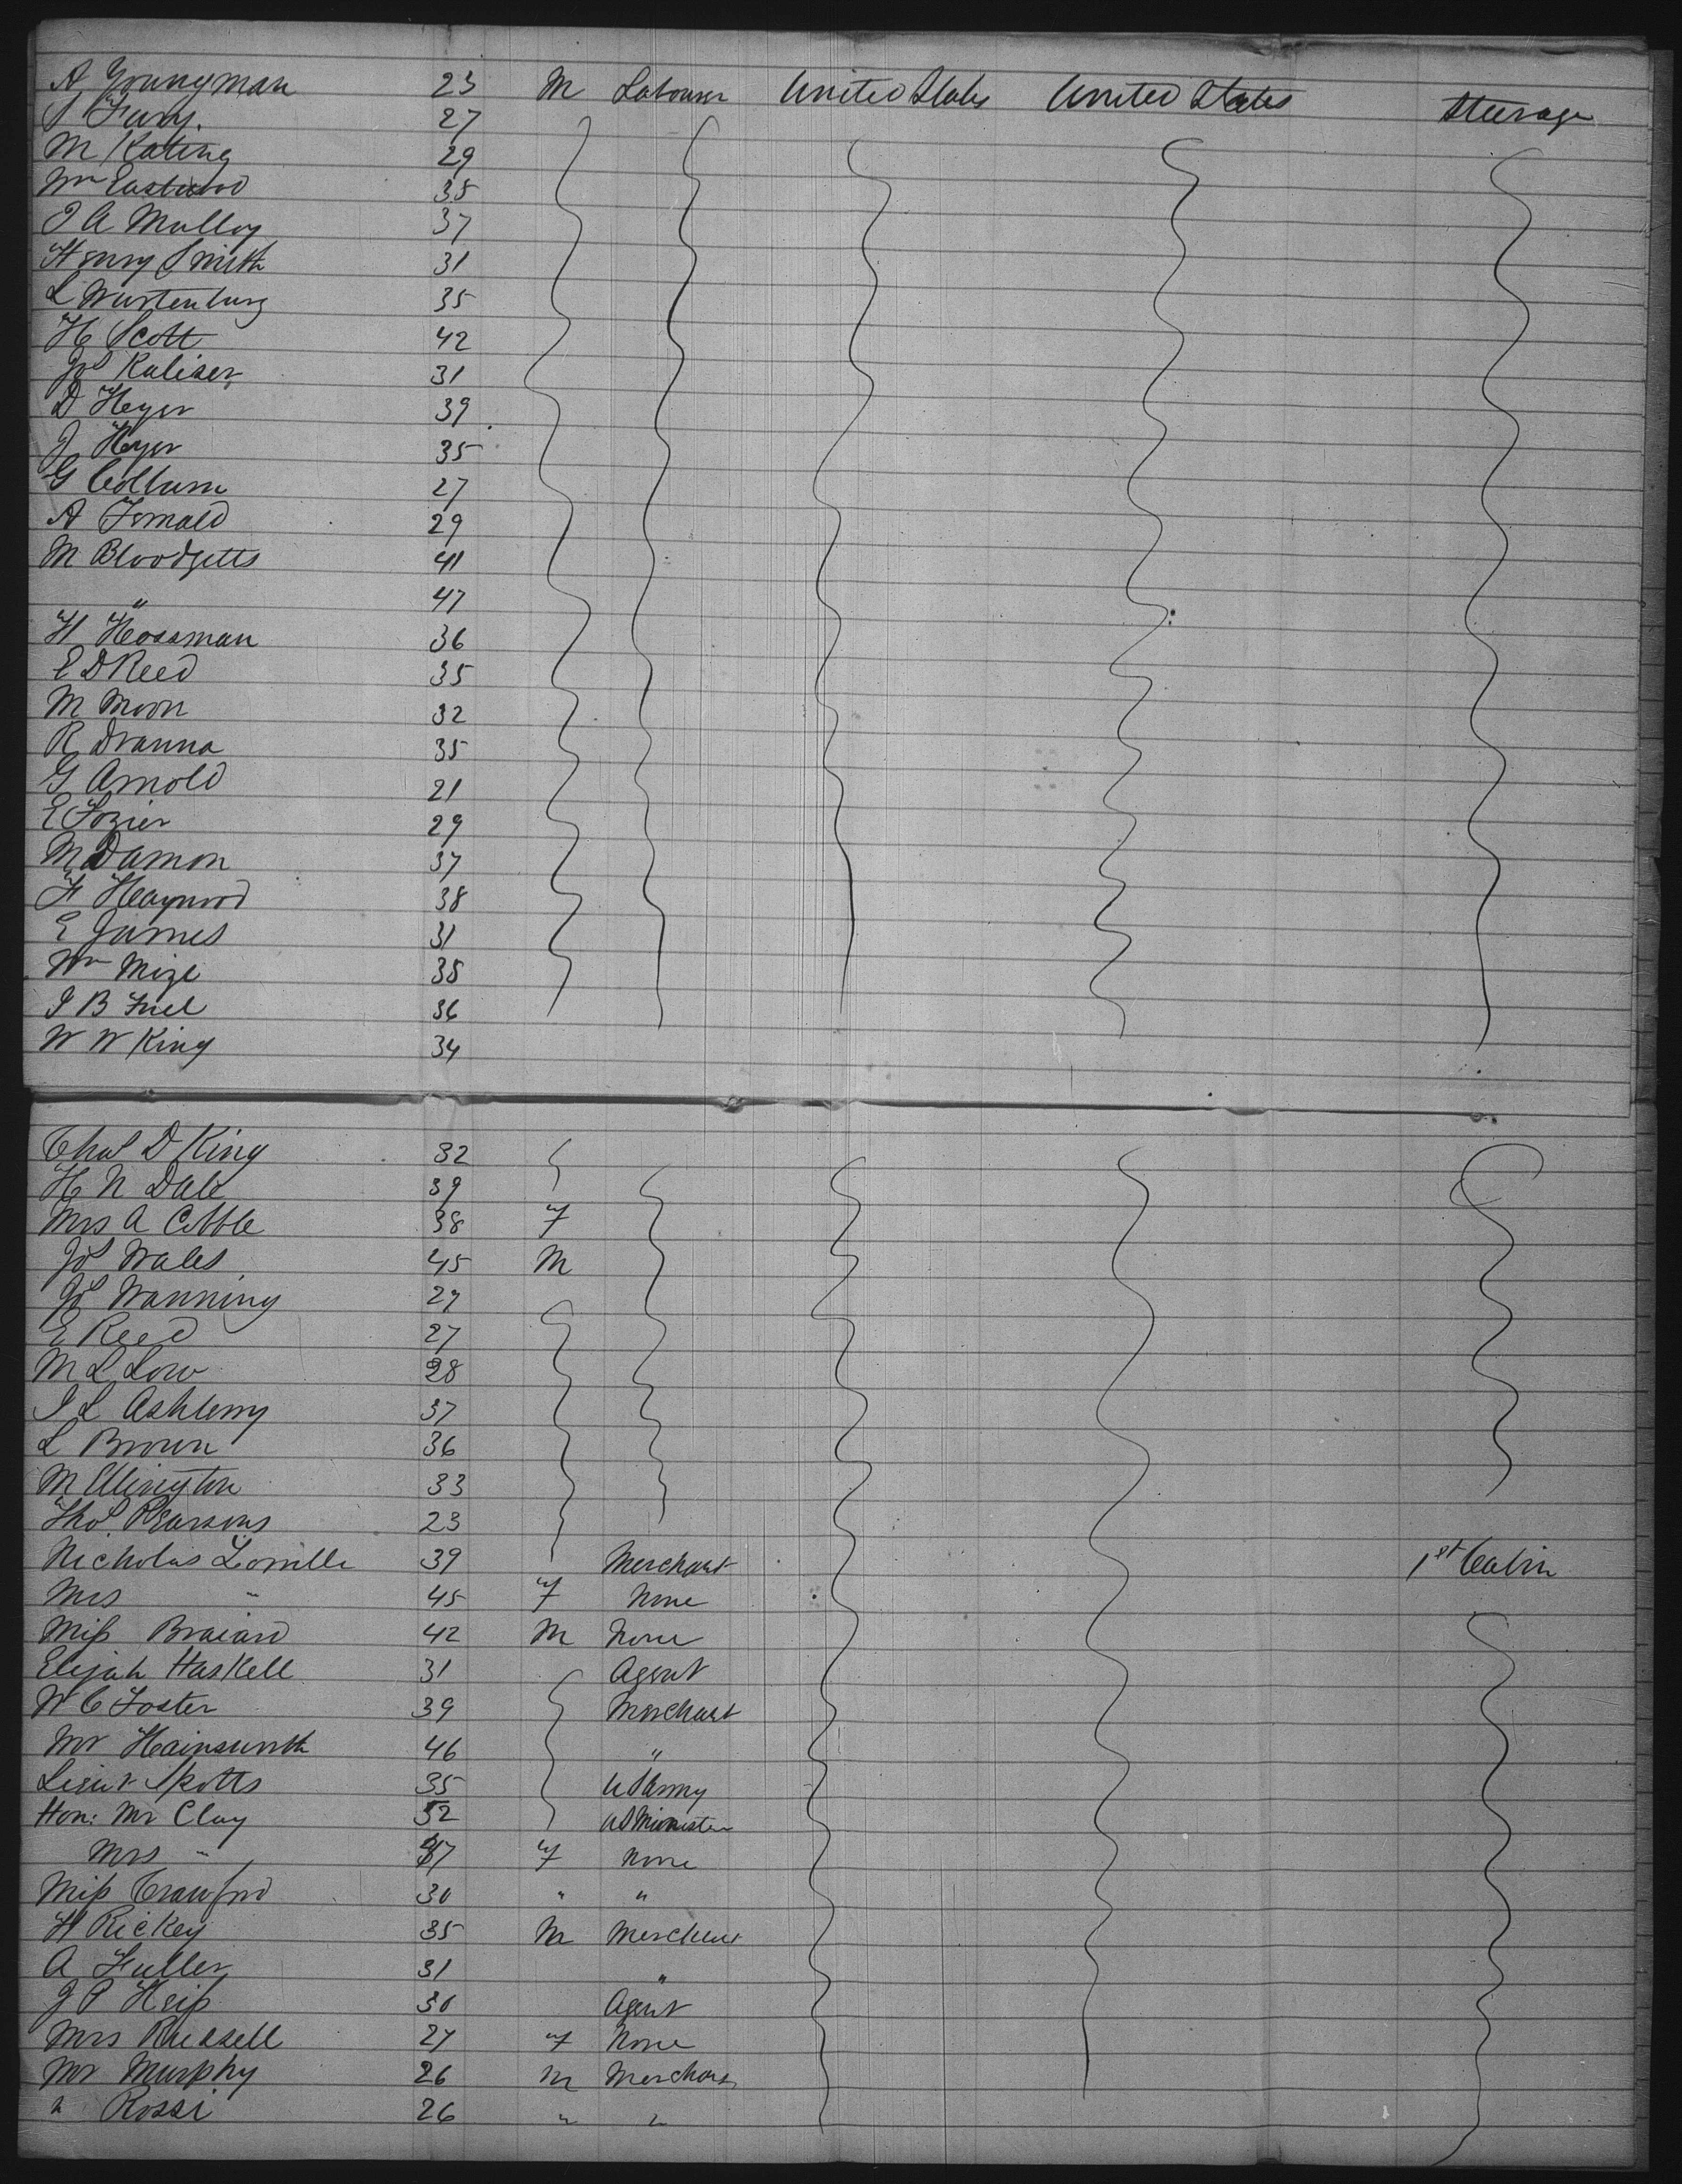 A Youngman 23 M Labourer United States United States Steerage
S Fury. 27
M Kating 29
Wm Eastwood 35
J A Mulloy 37
Henry Smith 31
L Wurtenburg 35
H Scott 42
Jos Kaliser 31
D Heyer 39
J Heyer 35
G Collum 27
A Fernald 29
M Bloodgetts 41
" 47
H Hossman 36
E D Reed 35
M Moon 32
R Dranna 35
G Arnold 21
E Fozier 29
M Damon 37
F Heaywood 38
E James 31
Wm Mize 38
J B 36
W W King 34
Chas D King 32
H N Dale 39
Mrs A Cobble 38 F
Jos Wales 45 M
Jos Wanning 27
E Reed 27
M L Low 28
J L Ashberry 37
L Brown 36
M Ellington 33
Thos Pearsons 23
Nicholas 39 Merchant 1st Cabin
Mrs " 45 F None
Miss 42 M None
Elijah Haskell 31 Agent
W C Foster 39 Merchant
Mr Hainsworth 46 "
Lieut Spotts 35 US Army
Hon: Mr Clay 52 US Minister
Mrs " 37 F None
Miss Crawford 30 " "
H Rickey 35 M Merchant
A Fuller 31 "
J P Heip 30 Agent
Mrs Rucksell 27 F None
Mr Murphy 26 M Merchant
" Rossi 26 " "